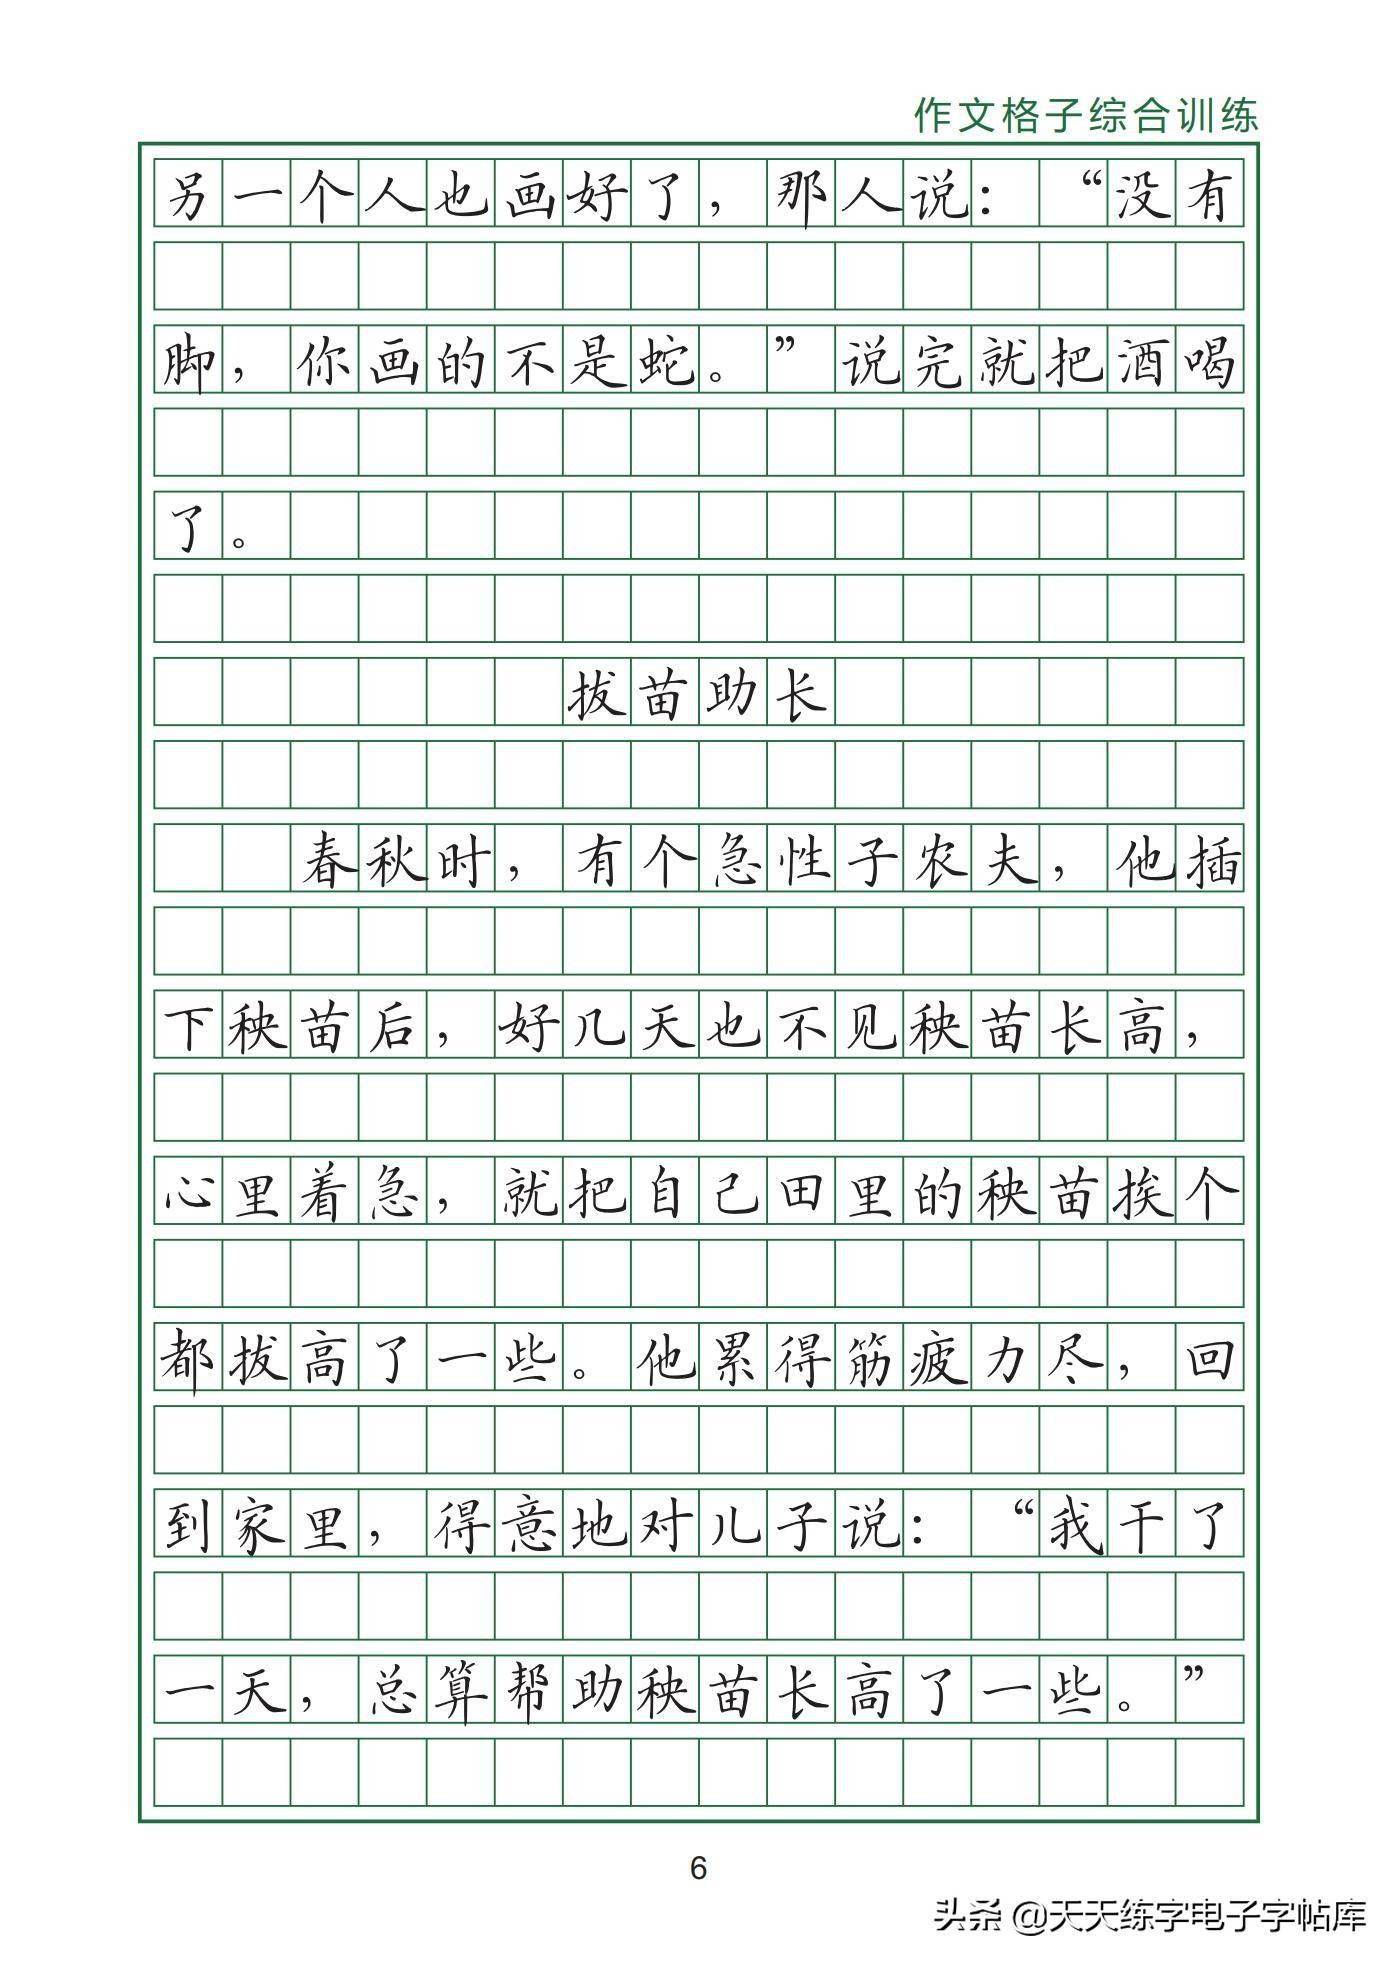 作文格子综合训练
另一个人也画好了，那人说：“没有
脚，你画的不是蛇。”说完就把酒喝
了。
拔苗助长
春秋时，有个急性子农夫，他插
下秧苗后，好几天也不见秧苗长高，
心里着急，就把自己田里的秧苗挨个
都拔高了一些。他累得筋疲力尽，回
到家里，得意地对儿子说：“我干了
一天，总算帮助秧苗长高了一些。”
6
头条 @天天练字电子字帖库